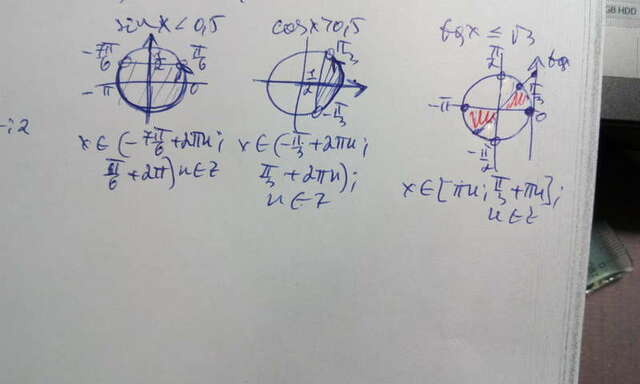 sin x < 0,5
-7π/6
π/6
1/2
-π
0
x ∈ (-7π/6 + 2πn;
π/6 + 2π) n ∈ Z
cos x > 0,5
π/3
1/2
-π/3
x ∈ (-π/3 + 2πn;
π/3 + 2πn);
n ∈ Z
tg x ≤ √3
π/2
tg
π/3
-π
0
-π/2
x ∈ [πn; π/3 + πn];
n ∈ Z
-; 2
GB HDD